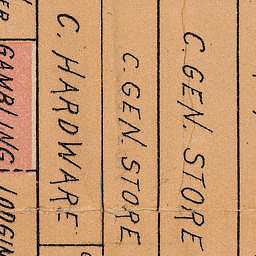 GAMBLING
C. HARDWARE
C. GEN. STORE
C. GEN. STORE